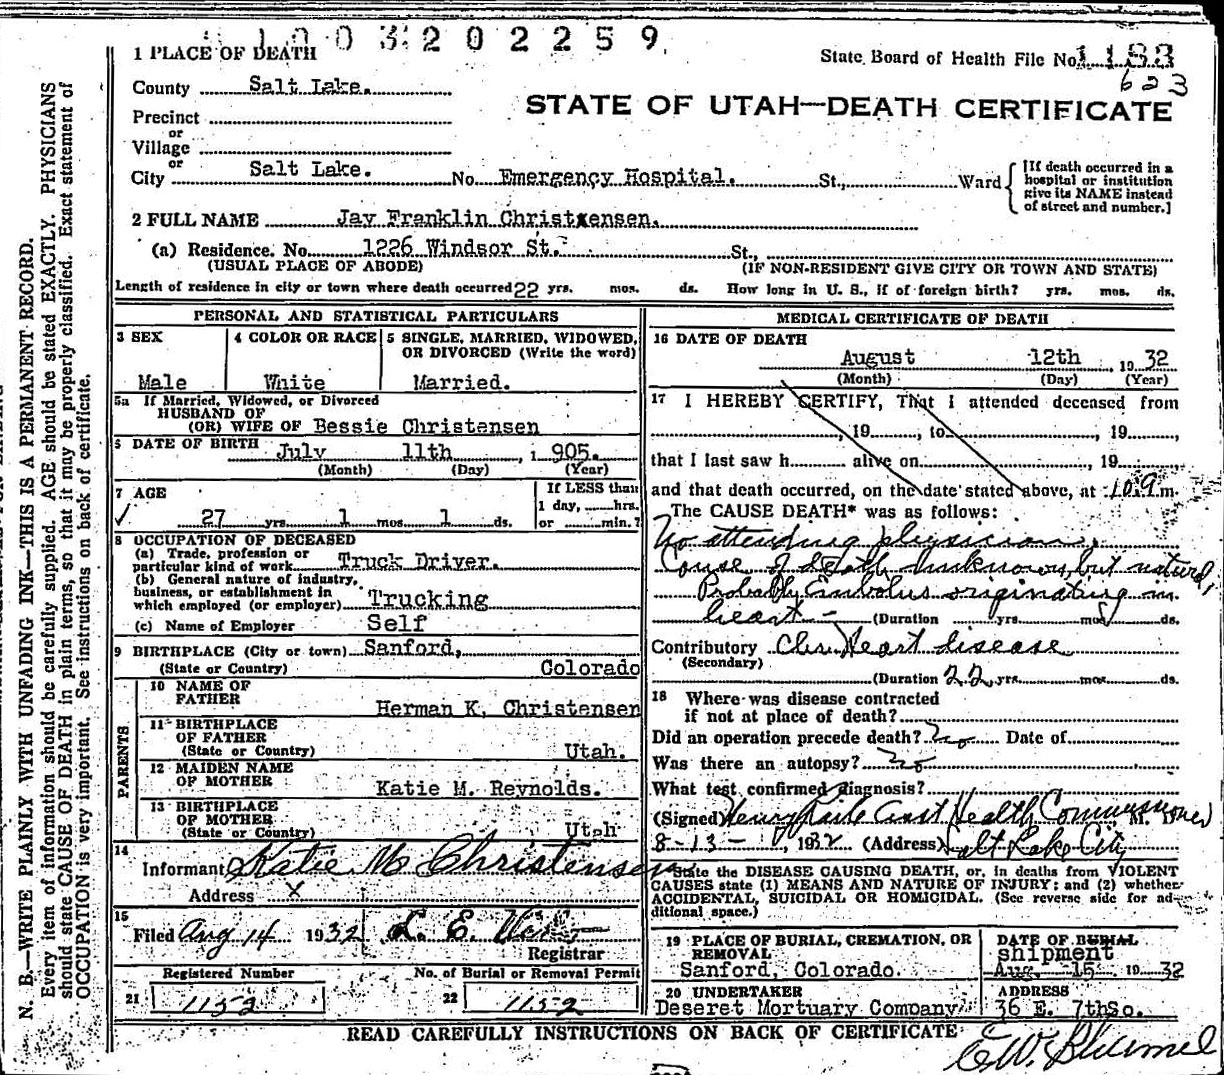 1003202259
1 PLACE OF DEATH
State Board of Health File No. 1183
623
County Salt Lake.
STATE OF UTAH—DEATH CERTIFICATE
Precinct
or
Village
or
City Salt Lake. No. Emergency Hospital. St., Ward
[If death occurred in a
hospital or institution
give its NAME instead
of street and number.]
2 FULL NAME Jay Franklin Christxensen.
(a) Residence. No. 1226 Windsor St. St.,
(USUAL PLACE OF ABODE) (IF NON-RESIDENT GIVE CITY OR TOWN AND STATE)
Length of residence in city or town where death occurred 22 yrs. mos. ds. How long in U. S., if of foreign birth? yrs. mos. ds.
PERSONAL AND STATISTICAL PARTICULARS
3 SEX
Male
4 COLOR OR RACE
White
5 SINGLE, MARRIED, WIDOWED,
OR DIVORCED (Write the word)
Married.
5a If Married, Widowed, or Divorced
HUSBAND OF
(OR) WIFE OF Bessie Christensen
6 DATE OF BIRTH July 11th, 1905.
(Month) (Day) (Year)
7 AGE
✓ 27 yrs. 1 mos. 1 ds.
If LESS than
1 day, hrs.
or min.?
8 OCCUPATION OF DECEASED
(a) Trade, profession or
particular kind of work Truck Driver.
(b) General nature of industry,
business, or establishment in
which employed (or employer) Trucking
(c) Name of Employer Self
9 BIRTHPLACE (City or town) Sanford,
(State or Country) Colorado
PARENTS
10 NAME OF
FATHER Herman K. Christensen
11 BIRTHPLACE
OF FATHER
(State or Country) Utah.
12 MAIDEN NAME
OF MOTHER Katie M. Reynolds.
13 BIRTHPLACE
OF MOTHER
(State or Country) Utah
14
Informant Katie M Christensen
Address X
15
Filed Aug 14 1932 L. E.
Registrar
Registered Number
21 1152
No. of Burial or Removal Permit
22 1152
MEDICAL CERTIFICATE OF DEATH
16 DATE OF DEATH
August 12th 1932
(Month) (Day) (Year)
17 I HEREBY CERTIFY, That I attended deceased from
, 19, to, 19,
that I last saw h alive on, 19
and that death occurred, on the date stated above, at m.
The CAUSE DEATH* was as follows:
No attending physician,
Cause of death unknown, but natural,
Probably Embolus originating in
heart — (Duration yrs. mos. ds.
Contributory Chr. Heart disease
(Secondary)
(Duration 22 yrs. mos. ds.
18 Where was disease contracted
if not at place of death?
Did an operation precede death? No Date of
Was there an autopsy? No
What test confirmed diagnosis?
(Signed) Henry Asst Health Commissioner M. D.
8-13-, 1932 (Address) Salt Lake City
State the DISEASE CAUSING DEATH, or, in deaths from VIOLENT
CAUSES state (1) MEANS AND NATURE OF INJURY; and (2) whether
ACCIDENTAL, SUICIDAL OR HOMICIDAL. (See reverse side for ad-
ditional space.)
19 PLACE OF BURIAL, CREMATION, OR
REMOVAL
Sanford, Colorado.
DATE OF BURIAL
shipment
Aug. 15 1932
20 UNDERTAKER
Deseret Mortuary Company
ADDRESS
36 E. 7thSo.
READ CAREFULLY INSTRUCTIONS ON BACK OF CERTIFICATE
N. B.—WRITE PLAINLY WITH UNFADING INK—THIS IS A PERMANENT RECORD.
Every item of information should be carefully supplied. AGE should be stated EXACTLY. PHYSICIANS
should state CAUSE OF DEATH in plain terms, so that it may be properly classified. Exact statement of
OCCUPATION is very important. See instructions on back of certificate.